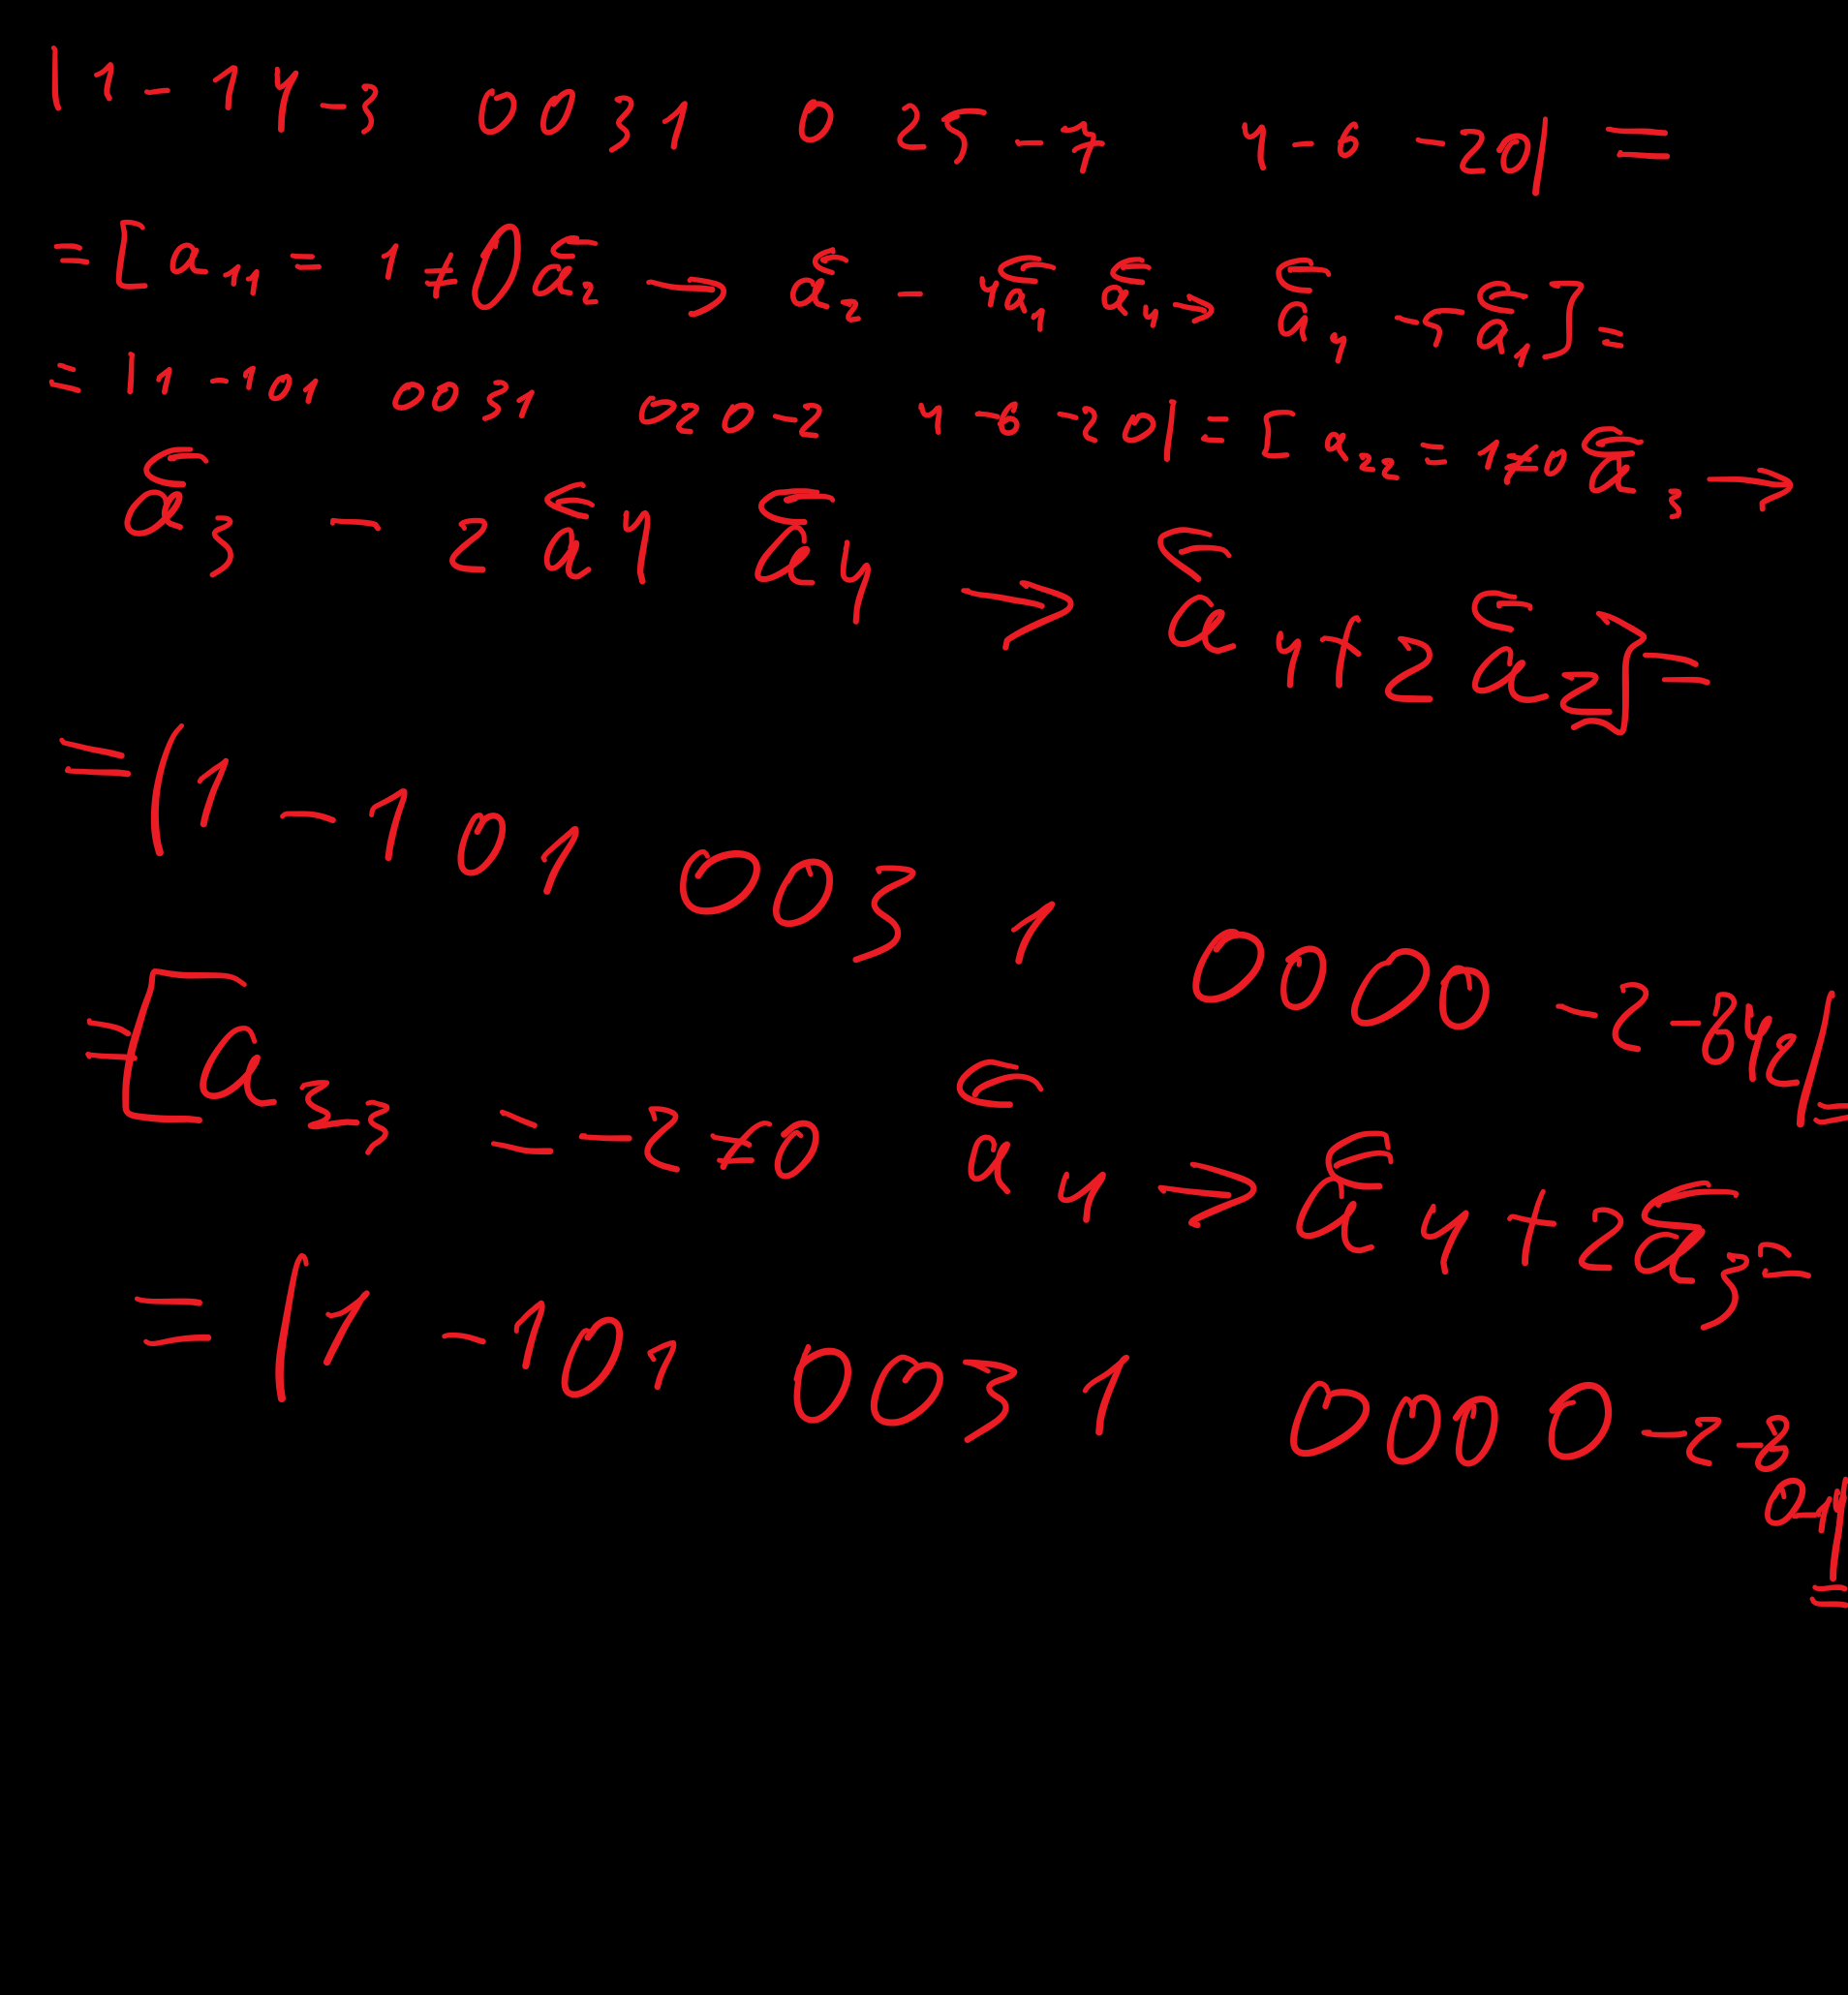 |1 - 1 4 - 3 0 0 3 1 0 2 5 - 7 4 - 6 - 2 0| =
= [a₁₁ = 1 ≠ 0 a⃐₂ → a⃐₂ - 4a⃐₁ a⃐₄ → a⃐₄ - 5a⃐₁] =
= |1 - 1 0 1 0 0 3 1 0 2 0 - 2 4 - 6 - 2 0| = [a₂₂ = 1 ≠ 0 a⃐₃ →
a⃐₃ - 2 a⃐4 a⃐₄ → a⃐₄ + 2 a⃐₂] =
= (1 - 1 0 1 0 0 3 1 0 0 0 0 - 2 - 8 4 2| =
= [a₃₃ = - 2 ≠ 0 a⃐₄ → a⃐₄ + 2a⃐₃ =
= |1 - 1 0 1 0 0 3 1 0 0 0 0 - 2 - 8
0 - 14| =